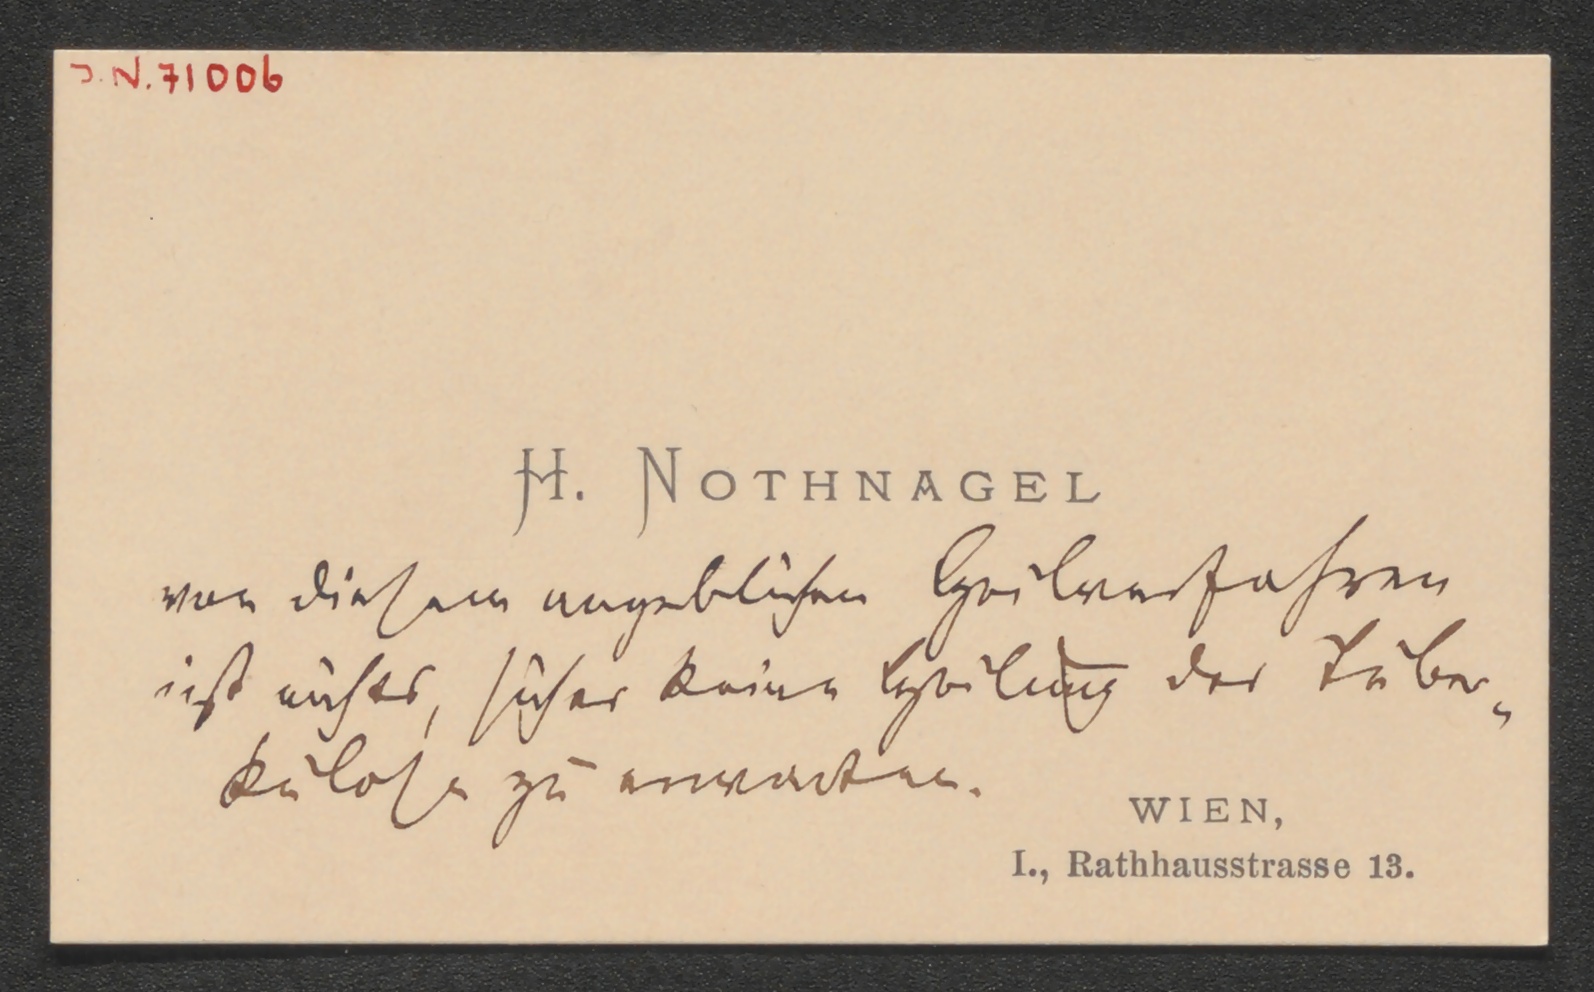 J.N. 71006
H. NOTHNAGEL
von diesem angeblichen Heilverfahren
ist nichts, sicher keine Heilung der Tuber-
kulose zu erwarten.
WIEN,
I., Rathhausstrasse 13.